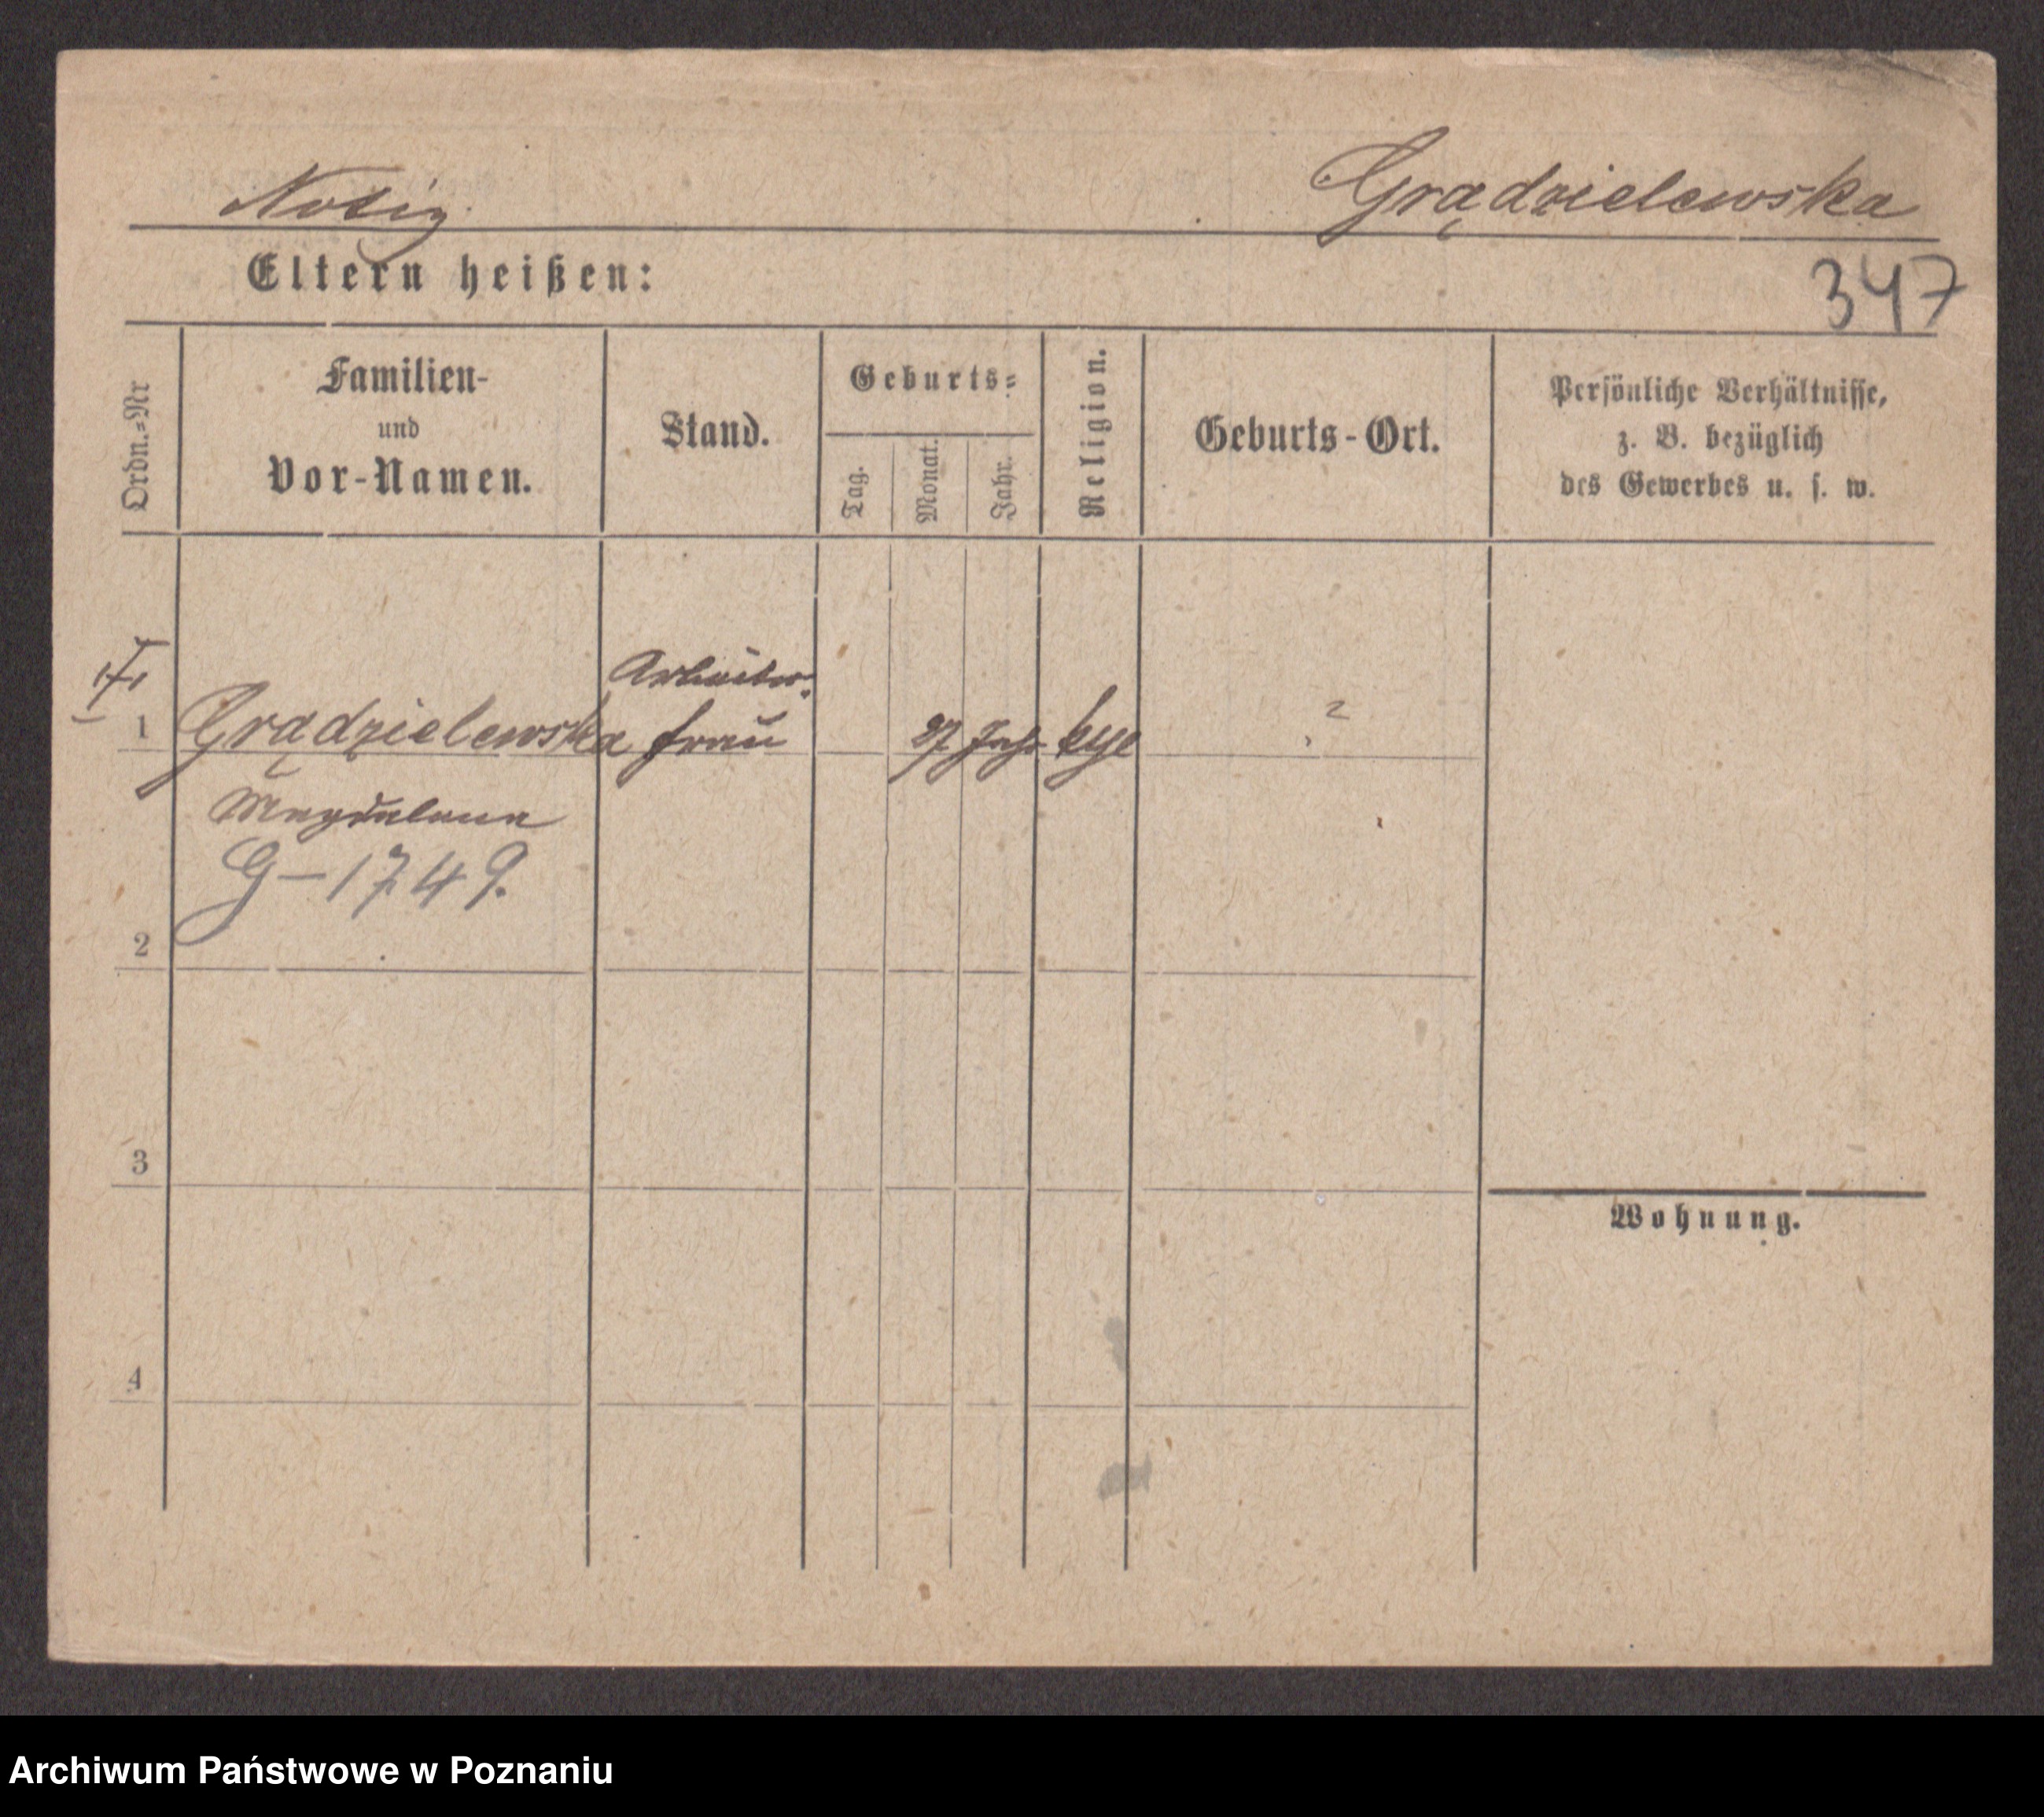 Notiz. Grądzielewska
Eltern heißen:
347
Ordn.=Nr
Familien-
und
Vor-Namen.
Stand.
Geburts=
Tag.
Monat.
Jahr.
Religion.
Geburts-Ort.
Persönliche Verhältnisse,
z. B. bezüglich
des Gewerbes u. s. w.
Arbeiter-
1 Grądzielewska frau 27 Jahr ?
Magdalena
G-1749.
2
3
Wohnung.
4
Archiwum Państwowe w Poznaniu